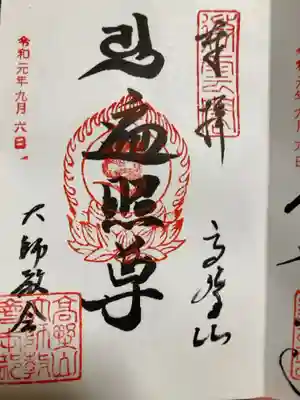 奉拝
高野山
遍照尊
令和元年九月六日
大師教会
高野山
大師教
會本部